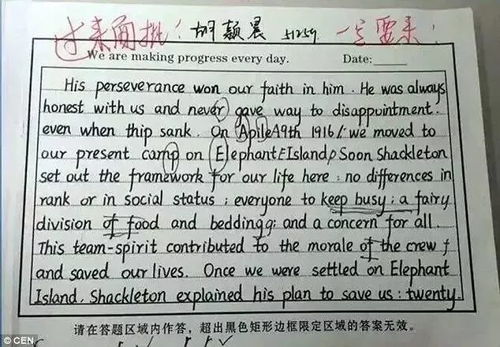 过来面批! 胡颖晨 51259. 一定要来!
We are making progress every day. Date:
His perseverance won our faith in him. He was always
honest with us and never gave way to disappointment.
even when thip sank. On ApileA9th 1916/ we moved to
our present camp on ElephantEIsland,p Soon Shackleton
set out the framework for our life here : no differences in
rank or in social status ; everyone to keep busy ; a fairy
division of food and beddingg; and a concern for all.
This team-spirit contributed to the morale of the crew f
and saved our lives. Once we were settled on Elephant
Island. Shackleton explained his plan to save us : twenty.
请在答题区域内作答，超出黑色矩形边框限定区域的答案无效。
© CEN